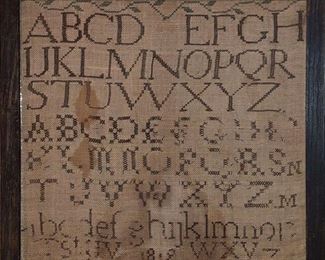 ABCD EFGH
IJKLMNOPQR
STUWXYZ
ABCDEFGHI
KLMNOPQRSN
TUVWXYZM
abcdefghijklmnop
WXYZ